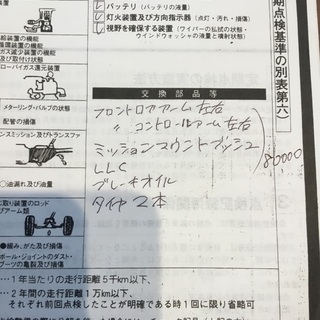 バッテリ（バッテリの液量）
灯火装置及び方向指示器（点灯・汚れ・損傷）
視野を確保する装置（ワイパーの払拭の状態・
ウインドウォッシャの液量と噴射状態）
期点検基準の別表第六］
給装置の機能
循環装置の機能
ガス減少装置の機能
及び取付け状態
ローバイガス還元装置
メターリング・バルブの状態
配管の損傷
ンスミッション及びトランスファ
○油漏れ及び油量
取り装置のロッド
アーム類
●緩み、がた及び損傷
ボール・ジョイントのダスト・
ブーツの亀裂及び損傷
交換部品等
フロントロアアーム 左右
〃 コントロールアーム 左右
ミッションマウントブッシュ
80000
LLC
ブレーキオイル
タイヤ 2本
…1年当たりの走行距離5千km以下、
…2年間の走行距離1万km以下、
それぞれ前回点検したことが明確である時1回に限り省略可